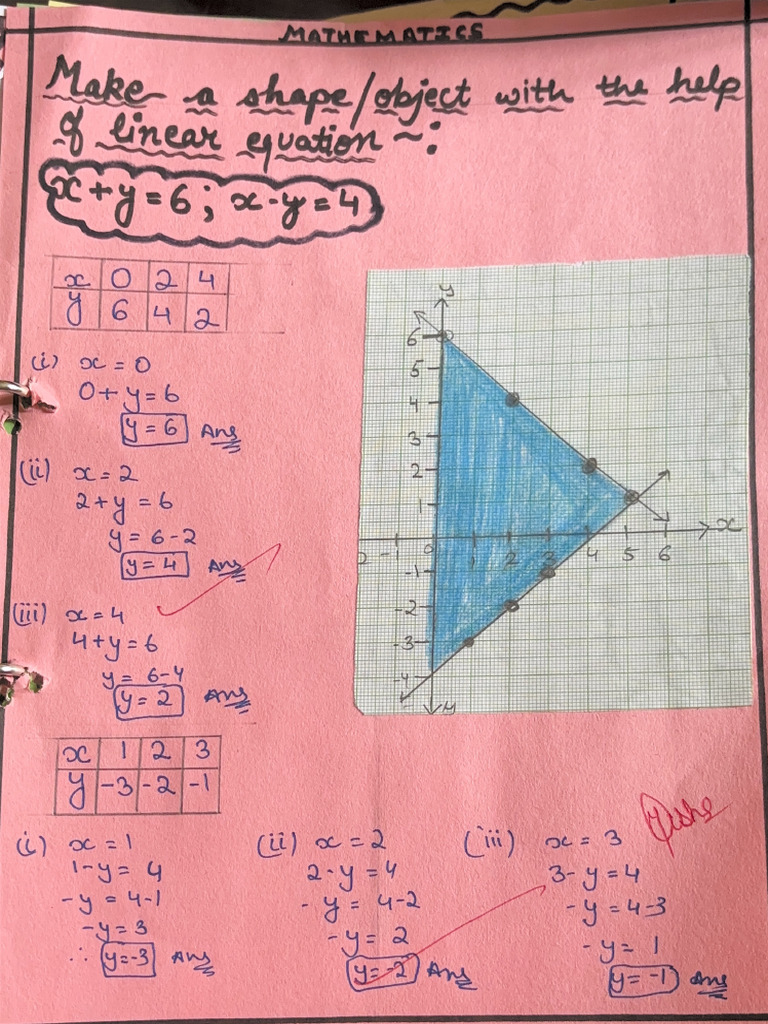 MATHEMATICS
Make a shape/object with the help
of linear equation ~:
x+y=6; x-y=4
x 0 2 4
y 6 4 2
(i) x=0
0+y=6
y=6 Ans
(ii) x=2
2+y=6
y=6-2
y=4 Ans
(iii) x=4
4+y=6
y=6-4
y=2 Ans
y
6
5
4
3
2
1
2 -1 0 1 2 3 4 5 6 x
-1
-2
-3
-4
y
x 1 2 3
y -3 -2 -1
(i) x=1
1-y=4
-y=4-1
-y=3
∴ y=-3 Ans
(ii) x=2
2-y=4
-y=4-2
-y=2
y=-2 Ans
(iii) x=3
3-y=4
-y=4-3
-y=1
y=-1 Ans